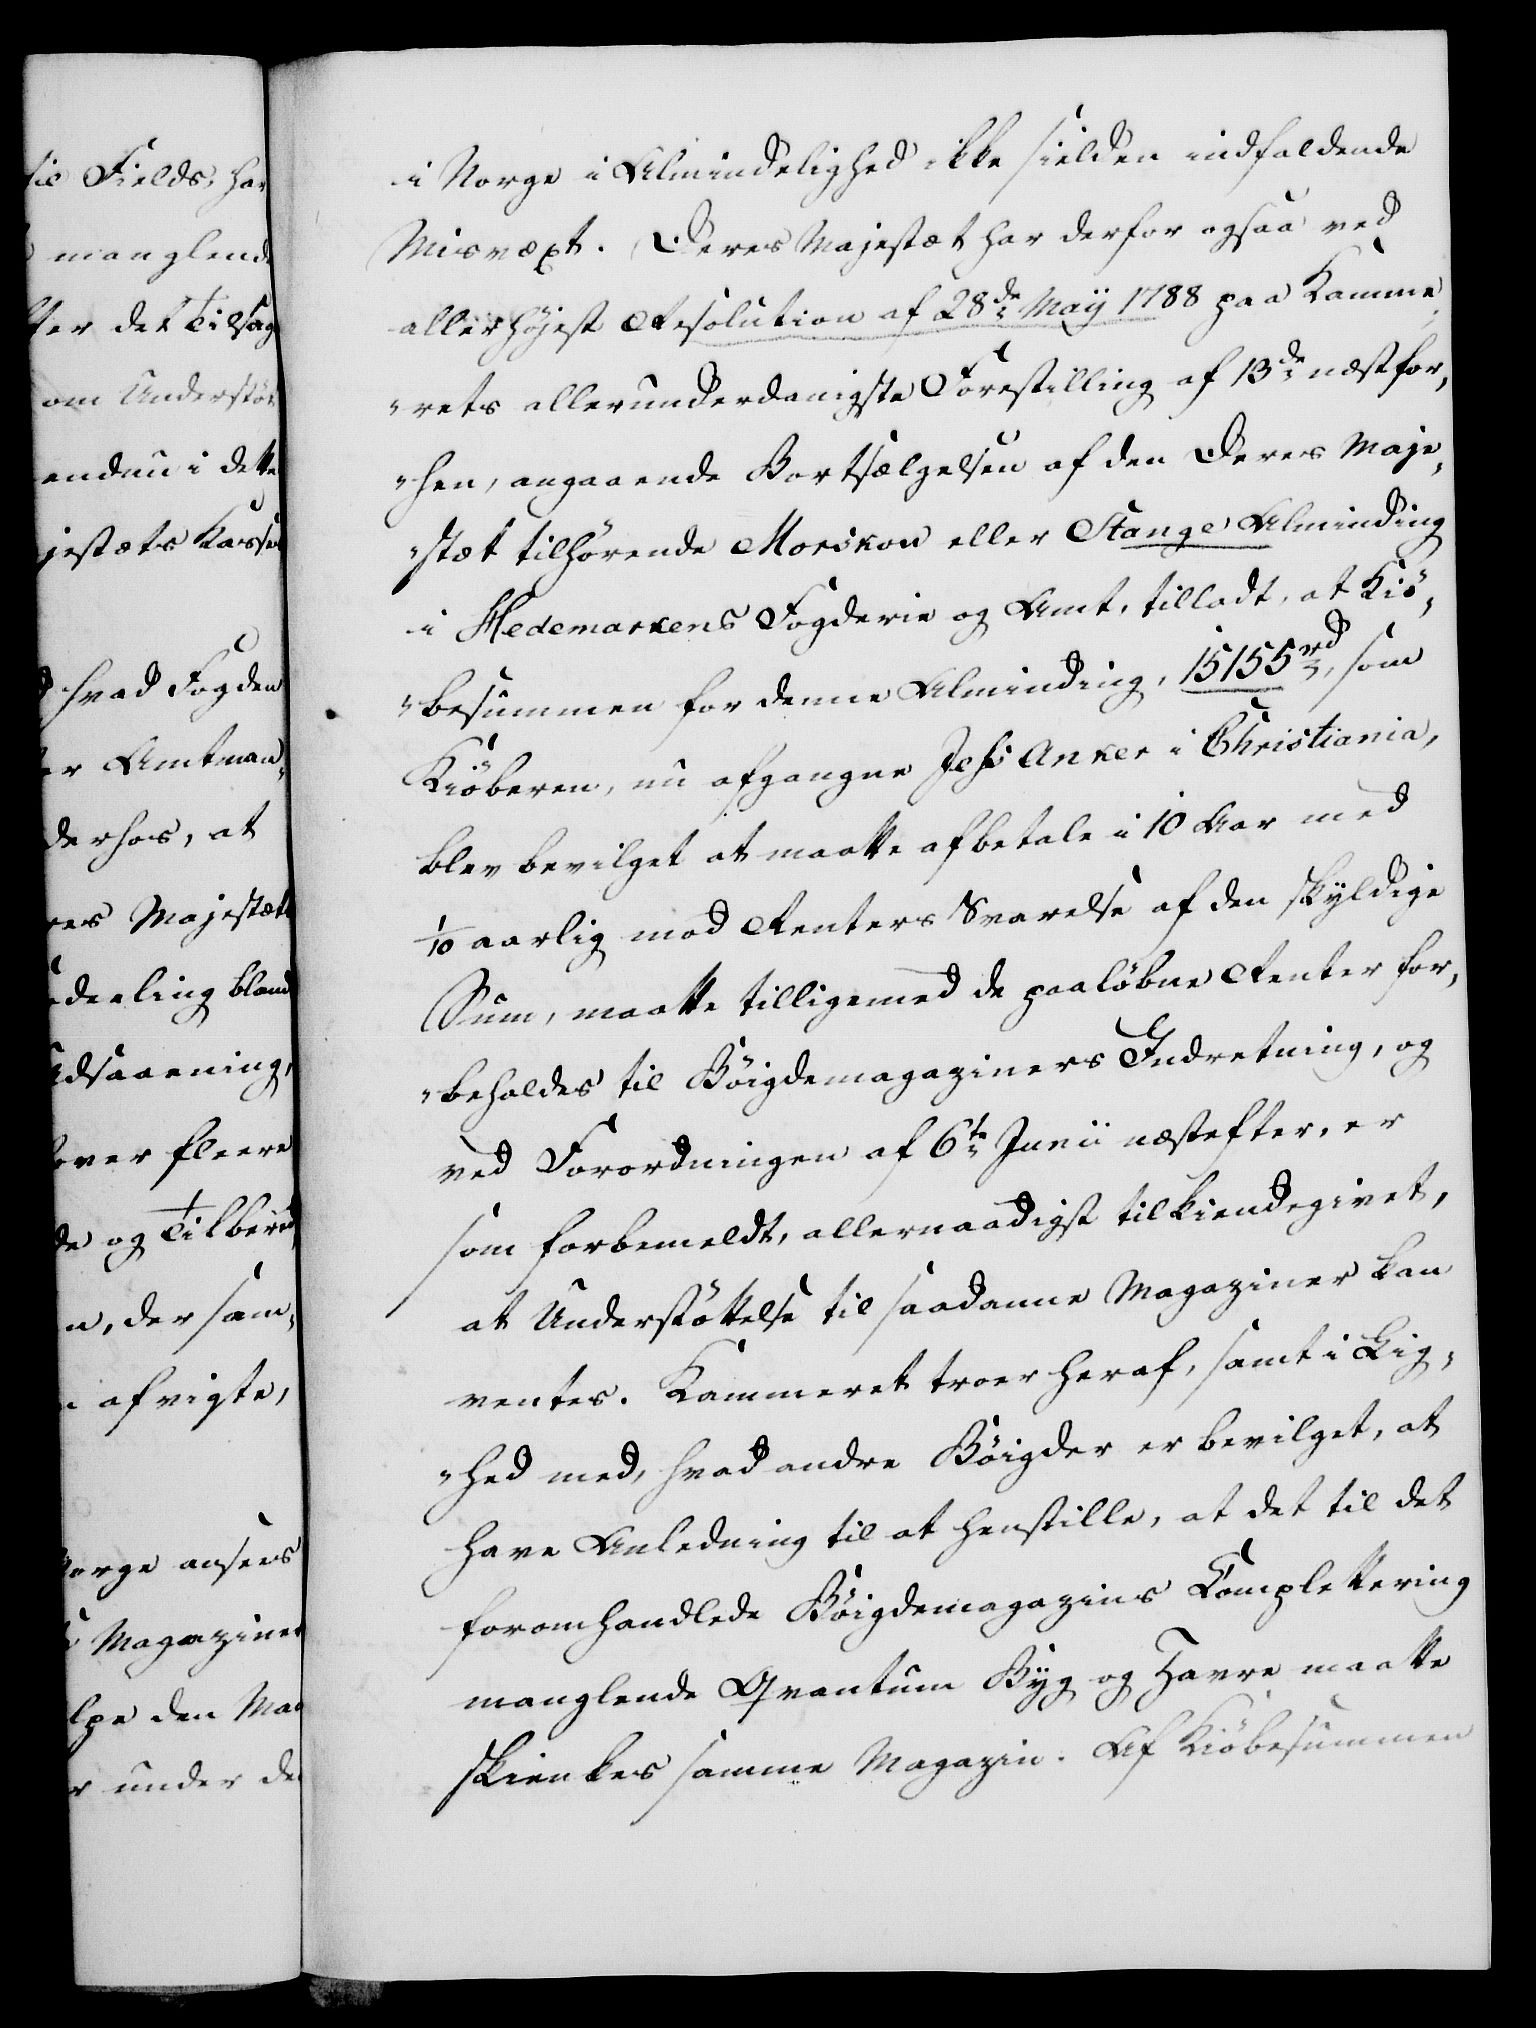 til Fields, har
manglende
ter det Tilsag
om Understöt
endnu i dette
jestæts Kasse
hvad Fogden
er Amtman„
derhos, at
res Majestæt
deeling bland
Udsaaening,
over fleere
de og Tilbers
n, der sam„
afvigte,
Norge ansees
Magaziner
lpe den Man
r under de
i Norge i Almindelighed ikke sielden indfaldende
Misvæxt. Deres Majestæt har derfor ogsaa ved
allerhöjest Resolution af 28de Maij 1788 paa Kamme„
„rets allerunderdanigste Forestilling af 13de næstfor„
„hen, angaaende Bortsælgelsen af den Deres Maje„
„stæt tilhörende Morskov eller Stange Alminding
i Hedemarkens Fogderie og Amt, tilladt, at Kiö„
„besummen for denne Alminding, 15155 rd, som
Kiöberen, nu afgangne Jess Anker i Christiania,
blev bevilget at maatte afbetale i 10 Aar med
1/10 aarlig mod Renters Svarelse af den skyldige
Sum, maatte tilligemed de paalöbne Renter for„
„beholdes til Böigdemagaziners Indretning, og
ved Forordningen af 6te Junii næstefter, er
som forbemeldt, allernaadigst tilkiendegivet,
at Understöttelse til saadanne Magaziner kan
ventes. Kammeret troer heraf, samt i Lig„
„hed med, hvad andre Böigder er bevilget, at
have Anledning til at henstille, at det til det
foromhandlede Böigdemagazins Complettering
manglende Qvantum Byg og Havre maatte
skienkes samme Magazin. Af Kiöbesummen